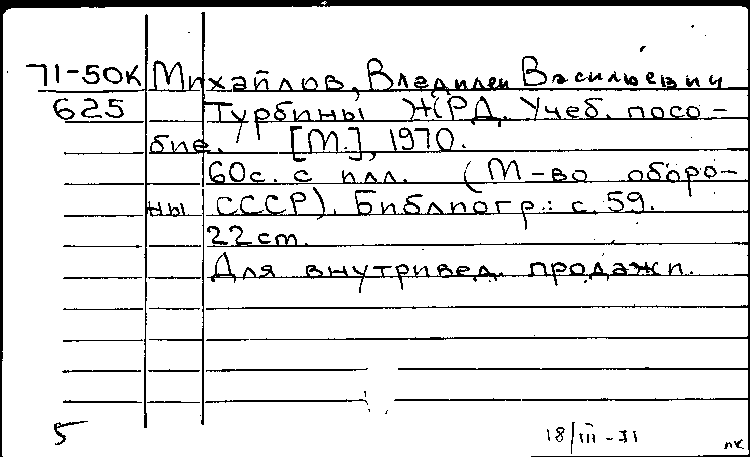 71-50К Михайлов, Владилен Васильевич
625 Турбины ЖРД. Учеб. посо-
бие. [М.], 1970.
60с. с илл. (М-во оборо-
ны СССР). Библиогр.: с. 59.
22 cm.
Для внутривед. продажи.
5 18/III-71 пк